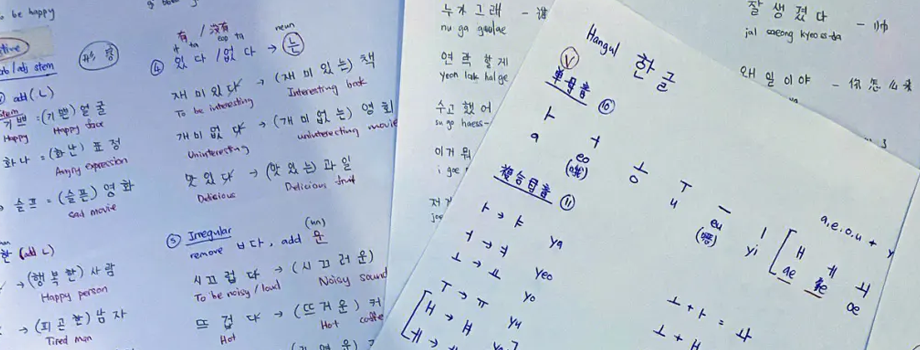 to be happy
ob/adj stem
② add (ㄴ)
기쁘 = (기쁜) 얼굴
Happy Happy face
화나 = (화난) 표정
Angry expression
슬프 = (슬픈) 영화
sad movie
한 (add ㄴ)
→ (행복한) 사람
Happy person
→ (피곤한) 남자
Tired man
有 / 没有
④ 있다 / 없다 → 는
neun
재미있다 → (재미있는) 책
To be interesting Interesting book
개미없다 → (개미없는) 영화
Uninteresting uninteresting movie
맛있다 → (맛있는) 과일
Delicious Delicious fruit
⑤ Irregular (un)
remove ㅂ다, add 운
시끄럽다 → (시끄러운)
To be noisy / loud Noisy sound
뜨겁다 → (뜨거운) 커
Hot Hot coffe
누가 그래
nu ga geulae
연락할게
yeon lak halge
수고했어
su go haess-
이거 뭐
i geo
잘생겼다 — 帅
jal saeong kyeoss-da
왜 일이야 — 你怎么
Hangul 한글
V
单母音 ⑩
ㅏ ㅓ ㅗ ㅜ ㅡ ㅣ
a eo o u eu yi
a, e, o, u + y
ㅐ ㅔ ㅚ
ae oe
複合母音 ⑪
ㅏ → ㅑ ya
ㅓ → ㅕ yeo
ㅗ → ㅛ yo
ㅜ → ㅠ yu
ㅗ + ㅏ = ㅘ